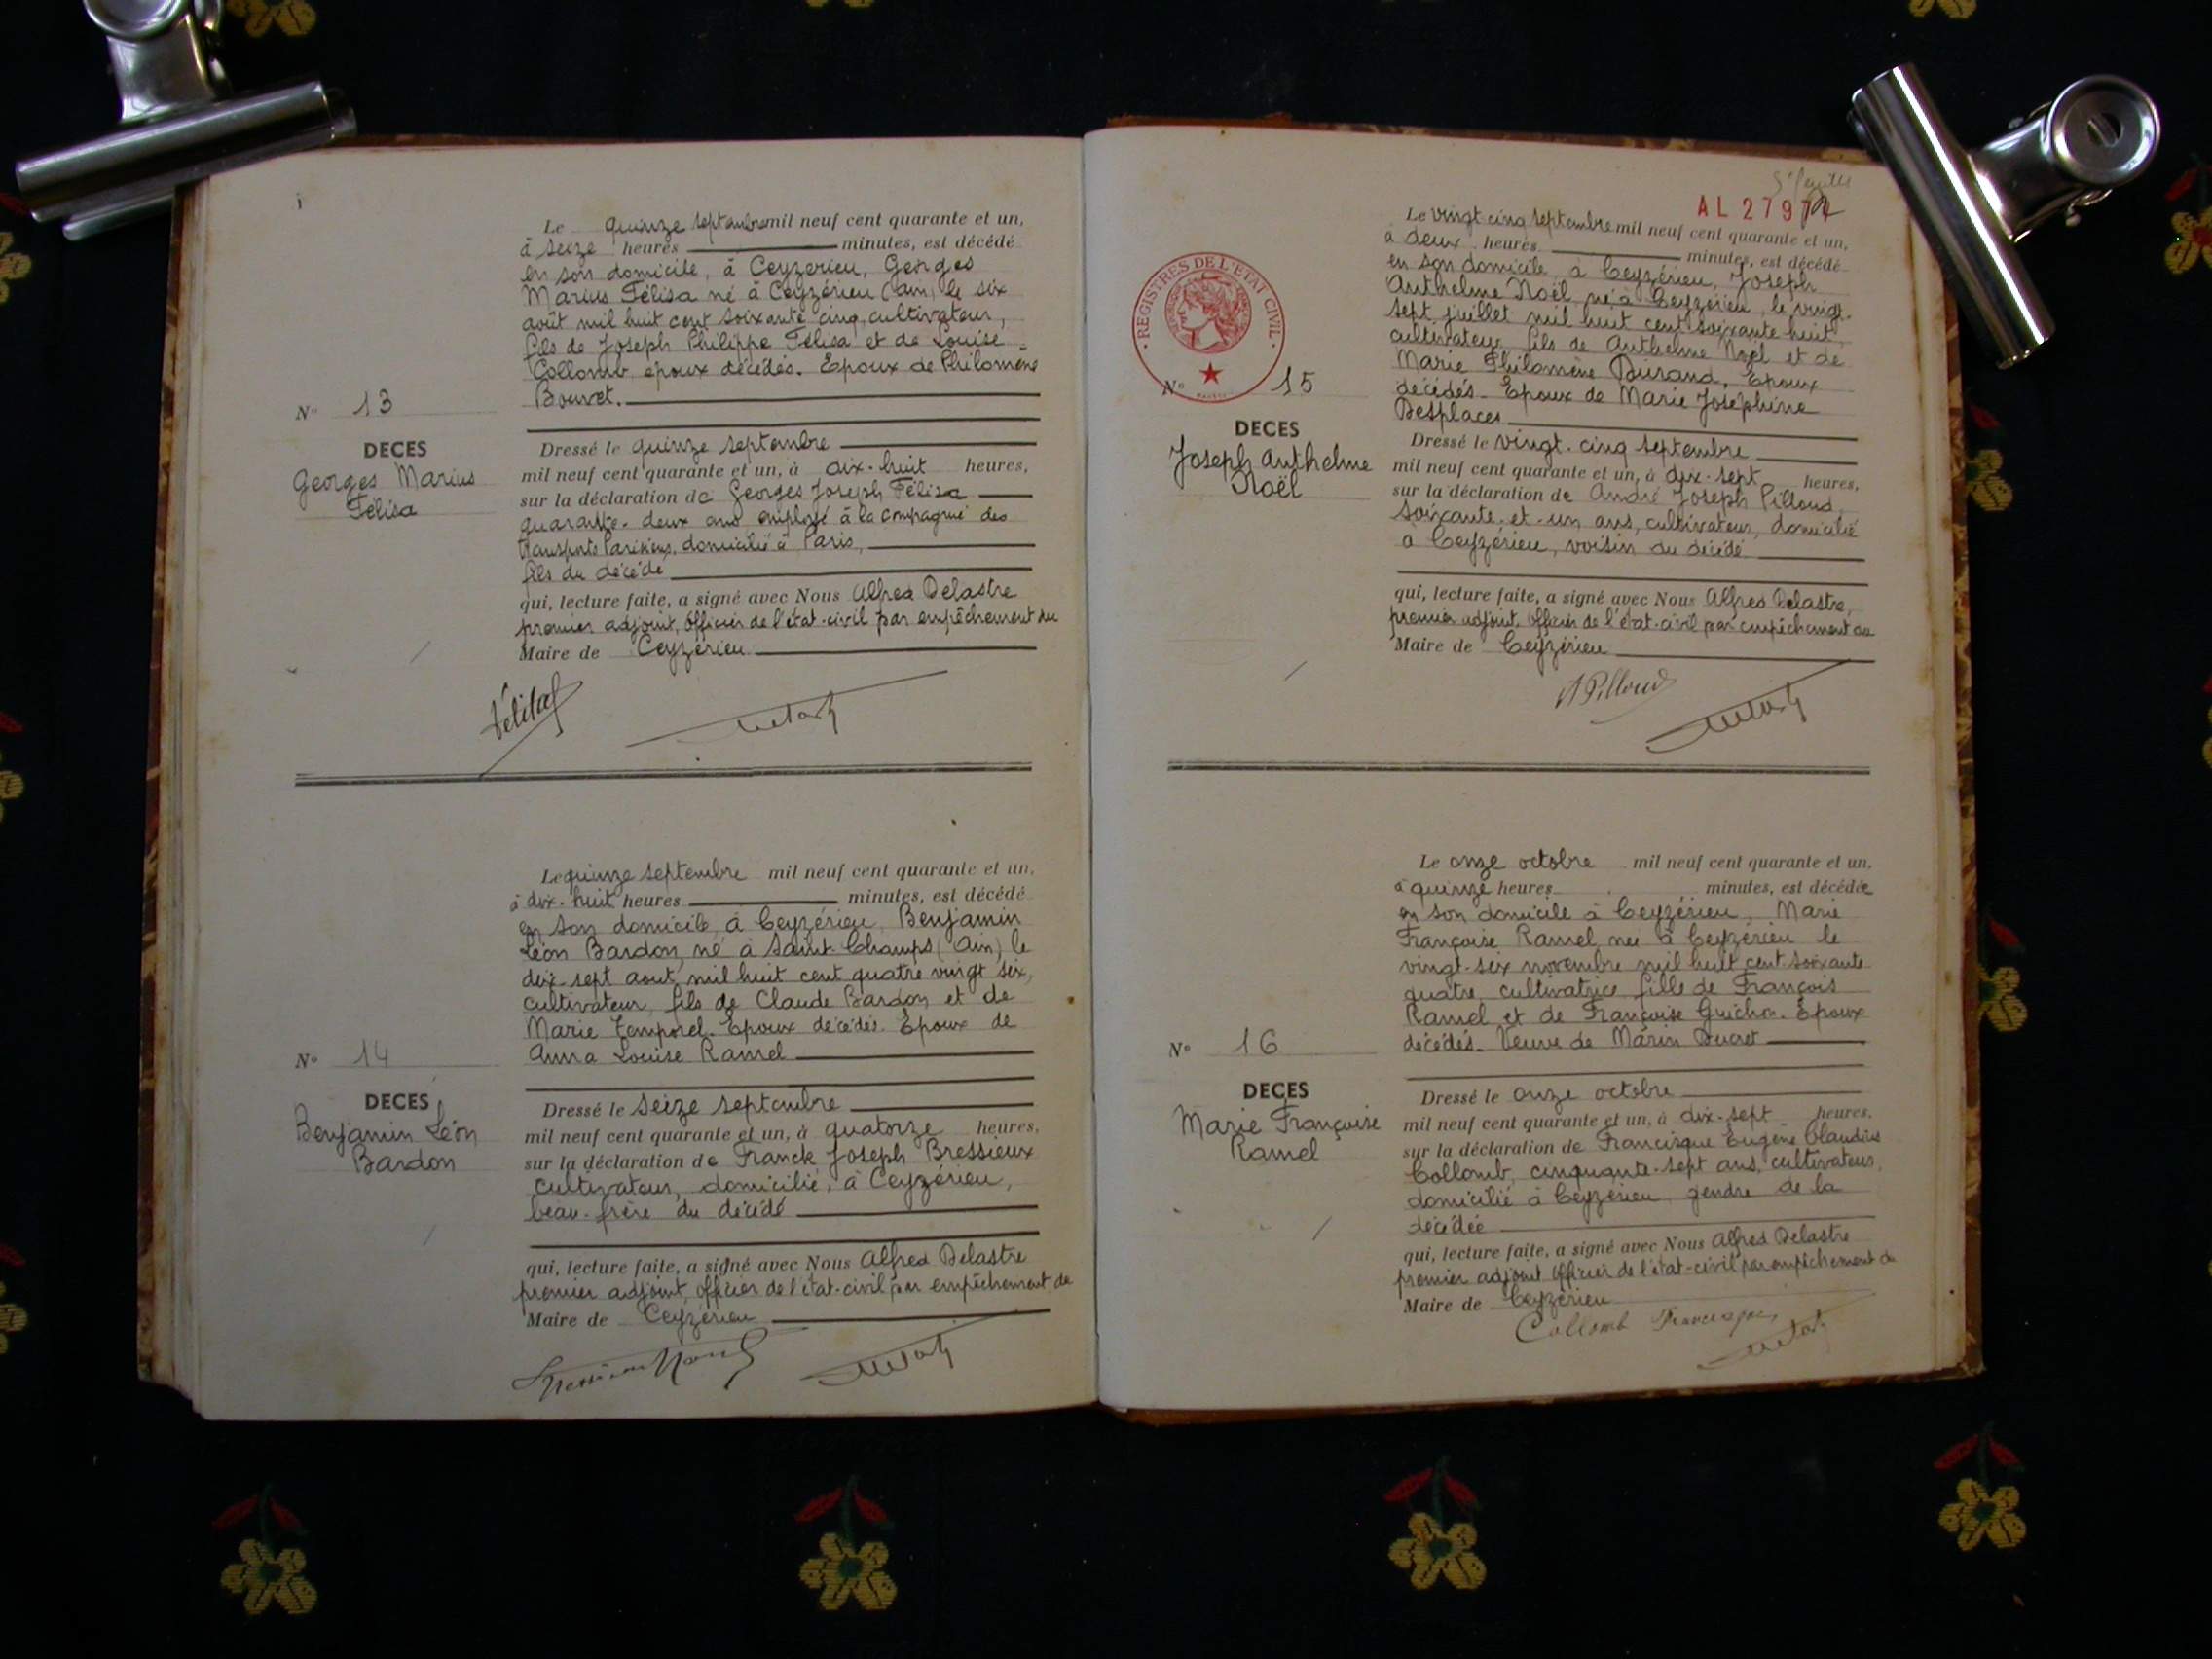 Le quinze septembre mil neuf cent quarante et un,
à seize heures minutes, est décédé
en son domicile, à Ceyzerieu, Georges
Marius Félisa né à Ceyzérieu (Ain) le six
août mil huit cent soixante cinq, cultivateur,
fils de Joseph Philippe Félisa et de Louise
Collomb, époux décédés. Epoux de Philomène
Bouvet.
N° 13
DECES
Georges Marius
Félisa
Dressé le quinze septembre
mil neuf cent quarante et un, à dix-huit heures,
sur la déclaration de Georges Joseph Félisa
quarante-deux ans employé à la Compagnie des
transports Parisiens, domicilié à Paris,
fils du décédé
qui, lecture faite, a signé avec Nous Alfred Delastre
premier adjoint, officier de l'état-civil par empêchement du
Maire de Ceyzérieu
Félisa
Le quinze septembre mil neuf cent quarante et un,
à dix-huit heures minutes, est décédé
en son domicile, à Ceyzérieu, Benjamin
Léon Bardon, né à Saint-Champs (Ain) le
dix-sept aout mil huit cent quatre vingt six,
cultivateur, fils de Claude Bardon et de
Marie Temporel. Epoux décédés. Epoux de
Anna Louise Ramel
N° 14
DECES
Benjamin Léon
Bardon
Dressé le seize septembre
mil neuf cent quarante et un, à quatorze heures,
sur la déclaration de Franck Joseph Bressieux
cultivateur, domicilié, à Ceyzérieu,
beau-frère du décédé
qui, lecture faite, a signé avec Nous Alfred Delastre
premier adjoint, officier de l'état-civil par empêchement du
Maire de Ceyzérieu
AL 279
Le vingt cinq septembre mil neuf cent quarante et un,
à deux heures minutes, est décédé
en son domicile, à Ceyzérieu, Joseph
Anthelme Noël, né à Ceyzérieu, le vingt-
sept juillet mil huit cent soixante huit,
cultivateur, fils de Anthelme Noël et de
Marie Philomène Durand, Epoux
décédés. Epoux de Marie Joséphine
Desplaces
REGISTRES DE L'ETAT CIVIL
N° 15
DECES
Joseph Anthelme
Noël
Dressé le vingt-cinq septembre
mil neuf cent quarante et un, à dix-sept heures,
sur la déclaration de André Joseph Pilloud,
soixante-et-un ans, cultivateur, domicilié
à Ceyzérieu, voisin du décédé
qui, lecture faite, a signé avec Nous Alfred Delastre,
premier adjoint, officier de l'état-civil par empêchement du
Maire de Ceyzérieu
A Pilloud
Le onze octobre mil neuf cent quarante et un,
à quinze heures minutes, est décédée
en son domicile à Ceyzérieu, Marie
Françoise Ramel, née à Ceyzérieu le
vingt-six novembre mil huit cent soixante
quatre, cultivatrice, fille de François
Ramel et de Françoise Guichon. Epoux
décédés. Veuve de Marin Ducret
N° 16
DECES
Marie Françoise
Ramel
Dressé le onze octobre
mil neuf cent quarante et un, à dix-sept heures,
sur la déclaration de Francisque Eugène Claudius
Collomb, cinquante-sept ans, cultivateur,
domicilié à Ceyzérieu, gendre de la
décédée
qui, lecture faite, a signé avec Nous Alfred Delastre
premier adjoint officier de l'état-civil par empêchement du
Maire de Ceyzérieu
Collomb Francisque